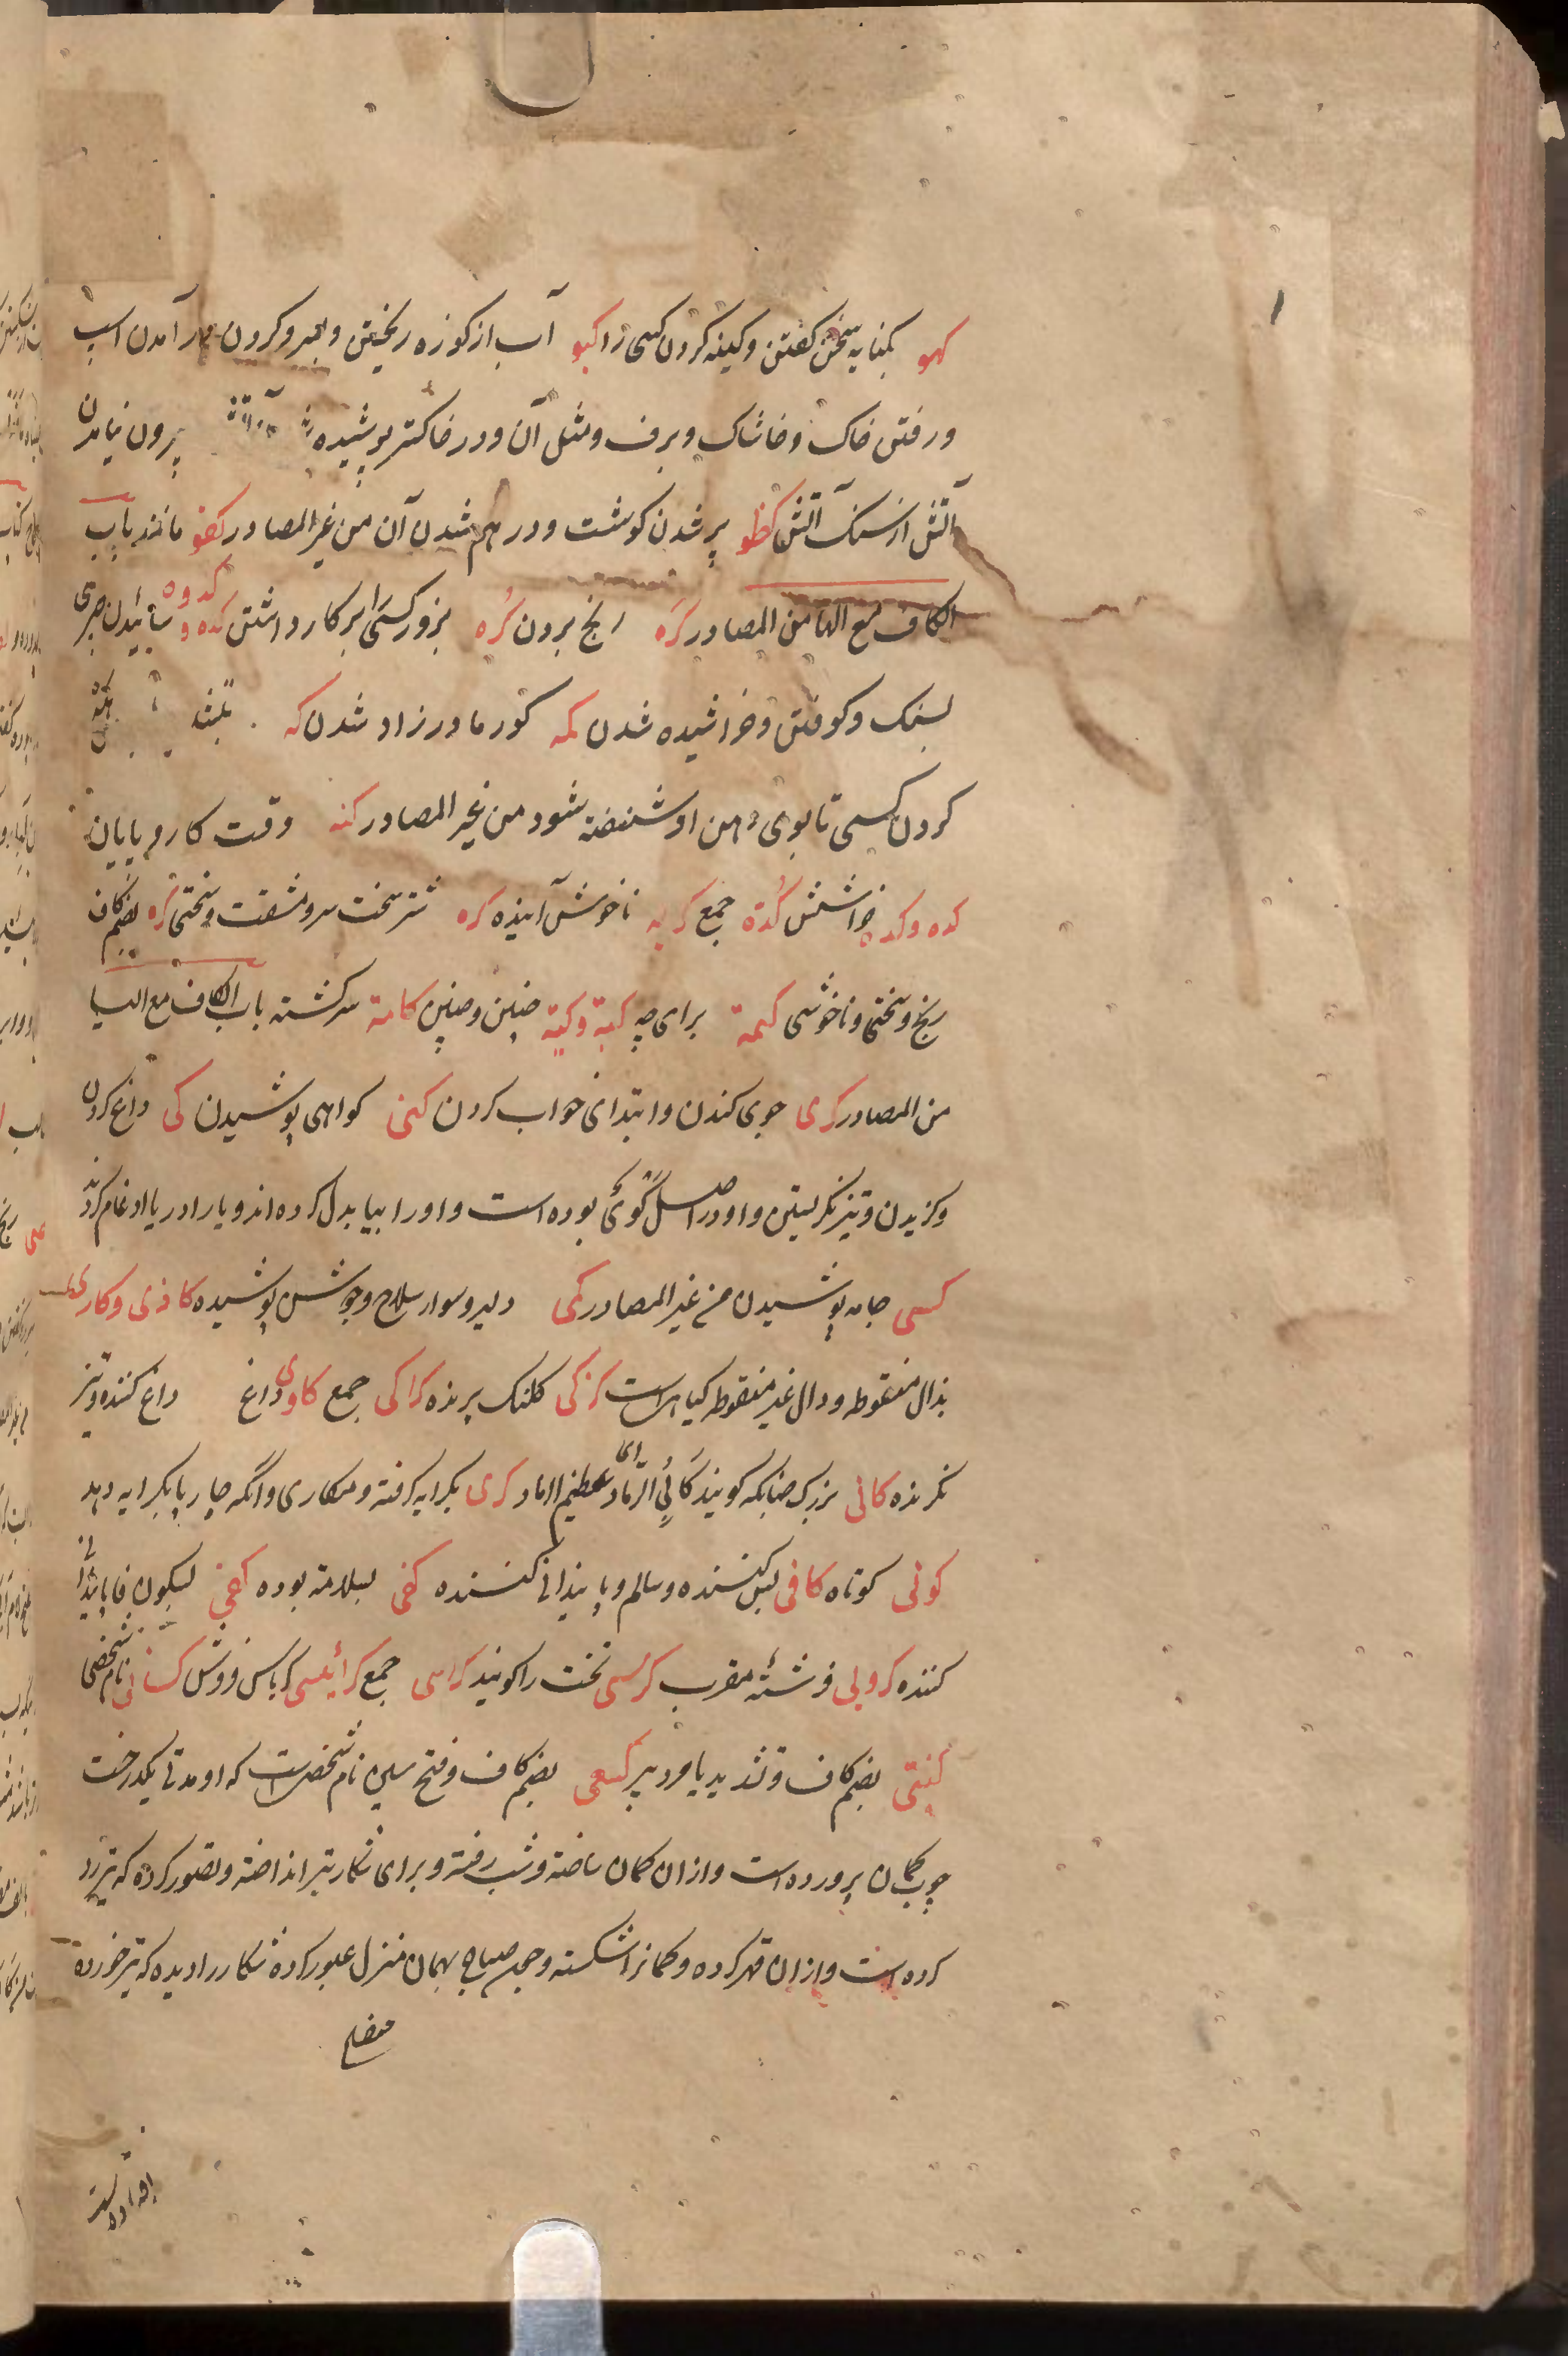 کهو بکنایه سخن گفتن و کینه کردن کسی را کبو آب از کوزه ریختن و بر رو کردن بر آمدن اسپ
و رفتن خاک و خاشاک و برف و مثل آن و در خاکستر پوشیده آتش بیرون نیامدن
آتش از سنک آتش کظو پر شدن کوشت و در هم شدن آن من غیر المصادر کفو مانند باب
الکاف مع الها من المصادر کره رنج بردن کُره بزور کسی را بر کار داشتن کده و کدوه سائیدن چیزی
بسنک و کوفتن و خراشیده شدن کمه کور مادرزاد شدن که
کردن کسی تا بوی دهن او شنفته شود من غیر المصادر کنه وقت کار و پایان
کده و کده خراشش کُدّه جمع کریه ناخوش آینده کره شتر سخت سر و مشقت و سختی کره بضم کاف
رنج و سختی و ناخوشی کیمة برای چه کیة و کیّه چنین و چنین کامة سرکشته باب الکاف مع الیا
من المصادر کری جوی کندن و ابتدای خواب کردن کمی کواهی پوشیدن کی داغ کردن
و کزیدن و تیز نکریستن و او در اصل کوئ بوده است و او را بیا بدل کرده اند و یا را در یا ادغام کردند
کسی جامه پوشیدن من غیر المصادر کمی دلیر و سوار سلاح و جوشن پوشیده کاذی و کاری
بذال منقوطه و دال غیر منقوطه کیاهیست کرکی کلنک پرنده کراکی جمع کاوی داغ داغ کننده و تیز
نکرنده کانی بزرک چنانکه کویند کابی الرماد ای عظیم الرماد کری بکرایه کرفته و مکاری و آنکه چارپا بکرایه دهد
کوتی کوتاه کافی بس کننده و سالم و پایندانی کننده کفی بسلامة بوده کفی بسکون فا پایندانی
کننده کروبی فرشتهٔ مقرب کرسی تخت را کویند کراسی جمع کرابیسی کرباس فروش کسائی نام شخصی
کنتی بضم کاف و تشدید یا مرد پیر کسعی بضم کاف و فتح سین نام شخصیست که او مدتی یکدرخت
چوب کمان پرورده است و ازان کمان ساخته و شب رفته و برای شکار تیر انداخته و تصور کرده که تیر رد
کرده است و ازان قهر کرده و کمانرا شکسته و چون صباح بهمان منزل عبور کرده شکار را دیده که تیر خورده